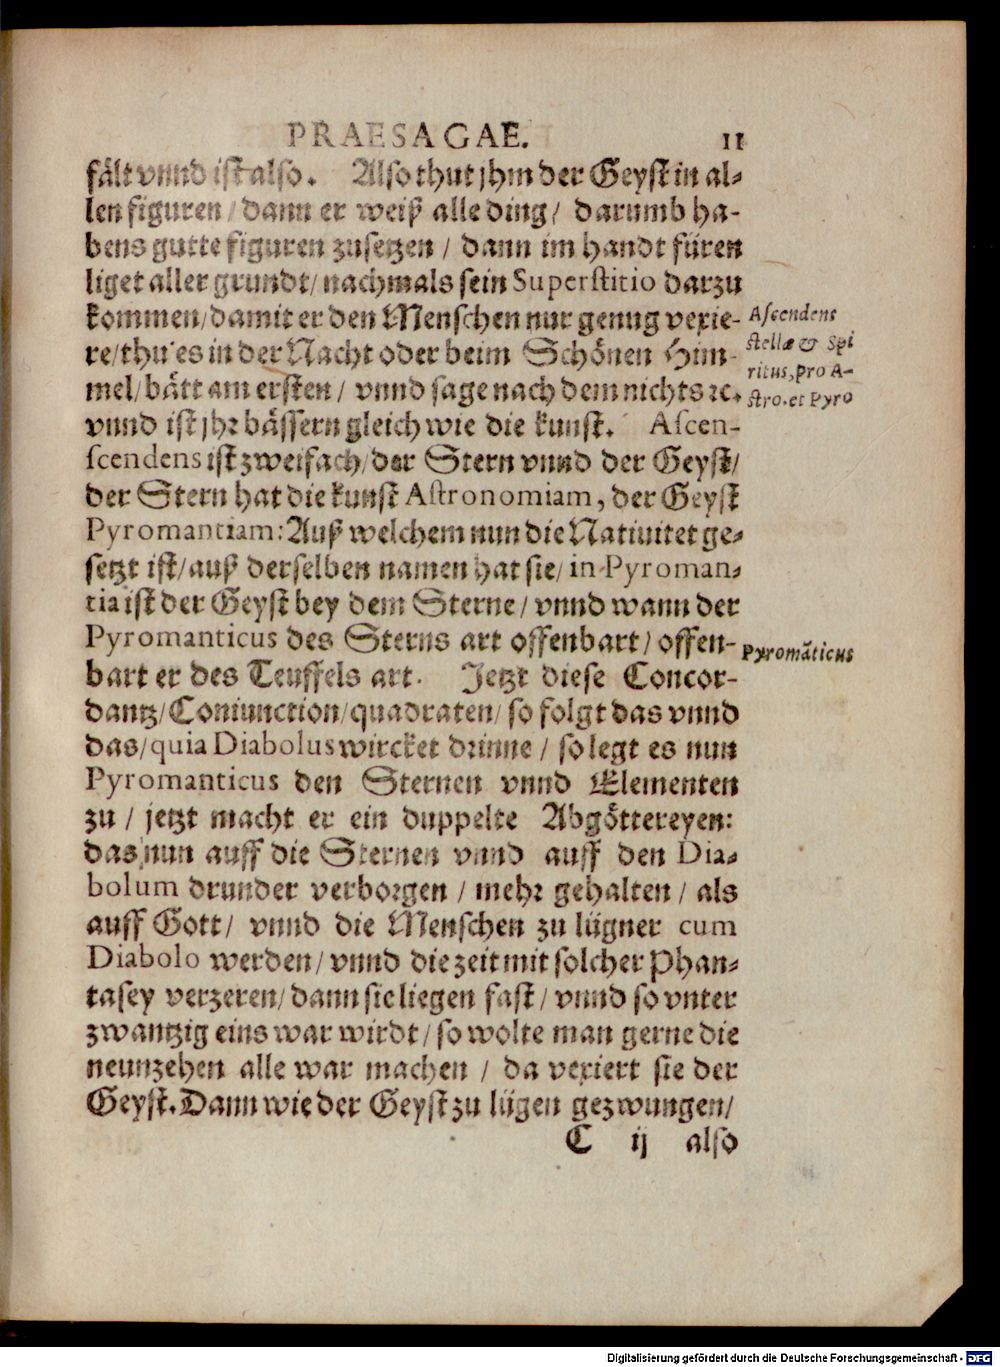 PRAESAGAE. 11
fält vnnd ist also. Also thut jhm der Geyst in al-
len figuren / dann er weiß alle ding / darumb ha-
bens gutte figuren zusetzen / dann im handt füren
liget aller grundt / nachmals sein Superstitio darzu
kommen / damit er den Menschen nur genug vexie-
re / thu es in der Nacht oder beim Schönen Him-
mel / bätt am ersten / vnnd sage nach dem nichts ꝛc.
vnnd ist jhr bässern gleich wie die kunst. Ascen-
scendens ist zweifach / der Stern vnnd der Geyst /
der Stern hat die kunst Astronomiam, der Geyst
Pyromantiam: Auß welchem nun die Natiuitet ge-
setzt ist / auß derselben namen hat sie / in Pyroman-
tia ist der Geyst bey dem Sterne / vnnd wann der
Pyromanticus des Sterns art offenbart / offen-
bart er des Teuffels art. Jetzt diese Concor-
dantz / Coniunction / quadraten / so folgt das vnnd
das / quia Diabolus wircket drinne / so legt es nun
Pyromanticus den Sternen vnnd Elementen
zu / jetzt macht er ein duppelte Abgöttereyen:
das nun auff die Sternen vnnd auff den Dia-
bolum drunder verborgen / mehr gehalten / als
auff Gott / vnnd die Menschen zu lügner cum
Diabolo werden / vnnd die zeit mit solcher Phan-
tasey verzeren / dann sie liegen fast / vnnd so vnter
zwantzig eins war wirdt / so wolte man gerne die
neunzehen alle war machen / da vexiert sie der
Geyst. Dann wie der Geyst zu lügen gezwungen /
C ij also
Ascendens
stellæ & Spi
ritus, pro A-
stro. et Pyro
Pyromāticus
Digitalisierung gefördert durch die Deutsche Forschungsgemeinschaft - DFG